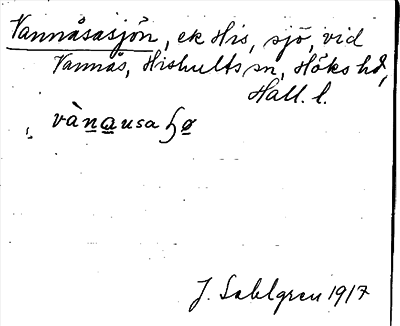 Vannåsasjön, ek His, sjö, vid
Vannås, Hishults sn, Höks hd,
Hall. l.
vànausa
J. Sahlgren 1917